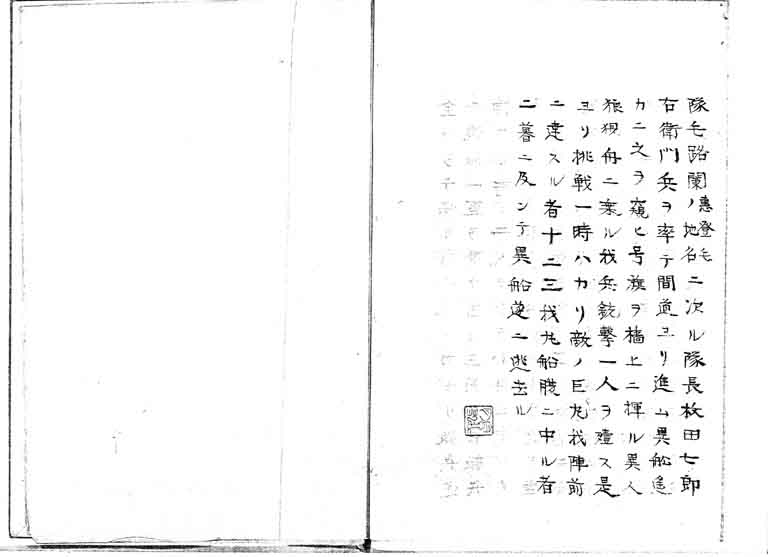 隊毛路蘭惠登毛ノ地名ニ次ル隊長枚田七郎
右衛門兵ヲ率テ間道ヨリ進ム異船遙
カニ之ヲ窺ヒ号旗ヲ檣上ニ揮ル異人
狼狽舟ニ乗ル我兵銃撃一人ヲ殪ス是
ヨリ挑戦一時ハカリ敵ノ巨丸我陣前
ニ達スル者十二三我丸船腹ニ中ル者
二暮ニ及ンテ異船遂ニ逃去ル